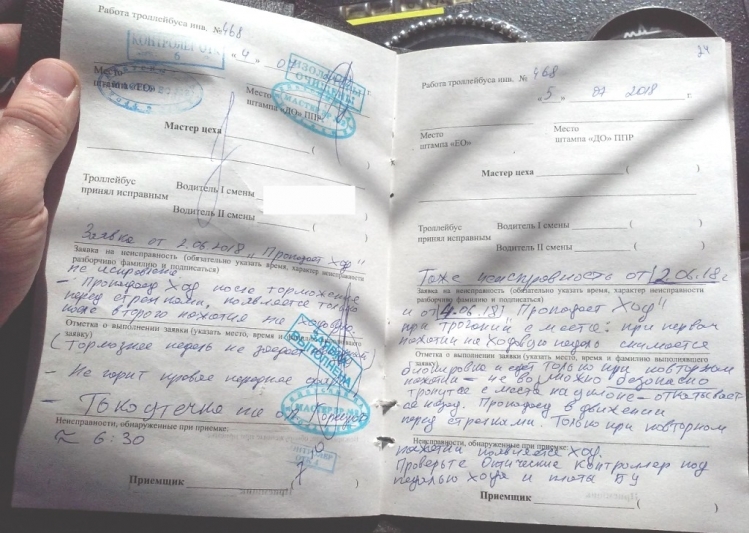 Работа троллейбуса инв. № 468
КОНТРОЛЕР ОТК
6
"4" 07 г.
ИЗОЛЯТОРЫ ОЧИЩЕНЫ
Место штампа «ЕО»
Место штампа «ДО» ППР
МАСТЕР
Мастер цеха ( )
Троллейбус принял исправным
Водитель I смены
Водитель II смены ( )
Заявка от 2.06.2018 "Пропадает Ход"
Заявка на неисправность (обязательно указать время, характер неисправности
разборчиво фамилию и подписаться)
не исправлена
- Пропадает Ход после торможения
перед стрелками, появляется только
после второго нажатия на ходовую.
Отметка о выполнении заявки (указать место, время и фамилию выполнявшего
заявку)
(Тормозная педаль не
ЗАЯВКА ВЫПОЛНЕНА
- Не горит правое переднее
МАСТЕР
- Токоутечка
Неисправности, обнаруженные при приемке:
≈ 6:30
Приемщик ( )
24
Работа троллейбуса инв. № 468
"5" 07 2018 г.
Место штампа «ЕО»
Место штампа «ДО» ППР
Мастер цеха ( )
Троллейбус принял исправным
Водитель I смены ( )
Водитель II смены ( )
Тоже неисправность от 2.06.18г
Заявка на неисправность (обязательно указать время, характер неисправности
разборчиво фамилию и подписаться)
и от 4.06.18 "Пропадает Ход"
при трогании с места: при первом
нажатии на Ходовую педаль снимается
Отметка о выполнении заявки (указать место, время и фамилию выполнявшего
заявку)
блокировка и едет только при повторном
нажатии - не возможно безопасно
тронутся с места на уклоне - откатывает-
ся назад. Пропадает в движении
перед стрелками. Только при повторном
Неисправности, обнаруженные при приемке:
нажатии появляется Ход.
Проверьте Оптический Контроллер под
педалью Хода и платы БУ
Приемщик ( )